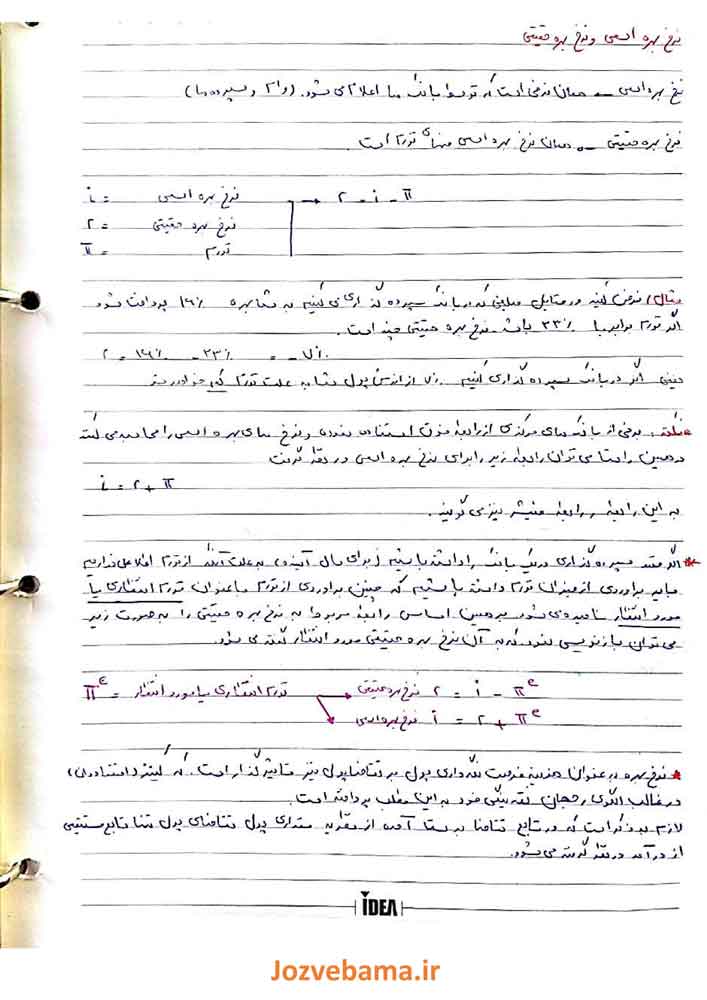 نرخ بهره اسمی و نرخ بهره حقیقی
نرخ بهره اسمی ← همان نرخی است که توسط بانک ها اعلام می شود. (وام و سپرده ها)
نرخ بهره حقیقی ← همان نرخ بهره اسمی منهای تورم است.
i = نرخ بهره اسمی → r = i - π
r = نرخ بهره حقیقی
π = تورم
مثال) فرض کنید در مقابل مبلغی که در بانک سپرده گذاری می کنیم به شما بهره ۱۶٪ پرداخت شود
اگر تورم برابر با ۲۳٪ باشد نرخ بهره حقیقی چند است.
r = ۱۶٪ - ۲۳٪ = -۷٪
یعنی اگر در بانک سپرده گذاری کنیم ۷٪ از ارزش پول شما به علت تورم کم خواهد شد
نکته: برخی از بانک های مرکزی از رابطه فوق استفاده نموده و نرخ های بهره اسمی را محاسبه می کنند
در همین راستا می توان رابطه زیر را برای نرخ بهره اسمی در نظر گرفت
i = r + π
به این رابطه، رابطه فیشر نیز می گویند.
* اگر قصد سپرده گذاری در یک بانک را داشته باشیم (برای سال آینده) به علت آنکه از تورم اطلاعی نداریم
باید برآوردی از میزان تورم داشته باشیم که چنین برآوردی از تورم با عنوان تورم انتظاری یا
مورد انتظار نامیده می شود بر همین اساس رابطه مربوط به نرخ بهره حقیقی را به صورت زیر
می توان بازنویسی نمود که به آن نرخ بهره حقیقی مورد انتظار گفته می شود.
πᵉ = تورم انتظاری یا مورد انتظار → نرخ بهره حقیقی r = i - πᵉ
نرخ بهره اسمی i = r + πᵉ
* نرخ بهره به عنوان هزینه فرصت نگهداری پول بر تقاضا پول نیز تاثیر گذار است. که کینز (اقتصاددان)
در غالب الگوی رجحان نقدینگی خود به این مطلب پرداخته است.
لازم به ذکر است که در تابع تقاضا به دست آمده از نظریه مقداری پول تقاضای پول تنها تابع مستقیمی
از درآمد در نظر گرفته می شود.
IDEA
Jozvebama.ir